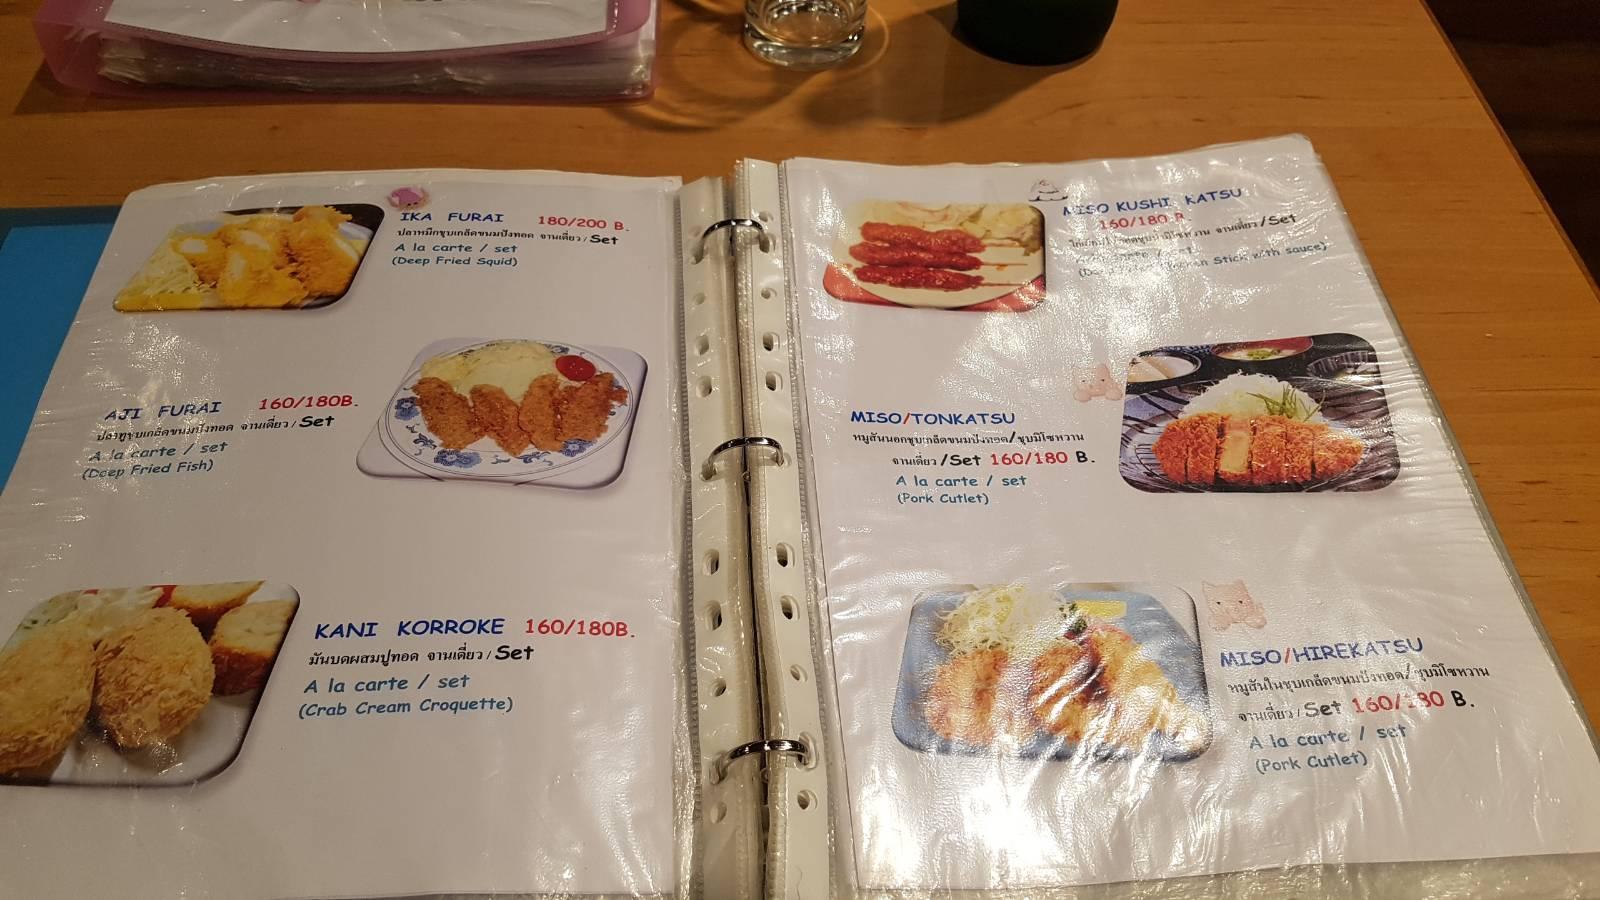 IKA FURAI 180/200 B.
ปลาหมึกชุบเกล็ดขนมปังทอด จานเดี่ยว / Set
A la carte / set
(Deep Fried Squid)
AJI FURAI 160/180B.
ปลาทูชุบเกล็ดขนมปังทอด จานเดี่ยว / Set
A la carte / set
(Deep Fried Fish)
KANI KORROKE 160/180B.
มันบดผสมปูทอด จานเดี่ยว / Set
A la carte / set
(Crab Cream Croquette)
MISO KUSHI KATSU
160/180 B.
จานเดี่ยว / Set
/ set
Stick with sauce)
MISO/TONKATSU
หมูสันนอกชุบเกล็ดขนมปังทอด/ชุบมิโซหวาน
จานเดี่ยว /Set 160/180 B.
A la carte / set
(Pork Cutlet)
MISO/HIREKATSU
หมูสันในชุบเกล็ดขนมปังทอด/ชุบมิโซหวาน
จานเดี่ยว / Set 160/180 B.
A la carte / set
(Pork Cutlet)